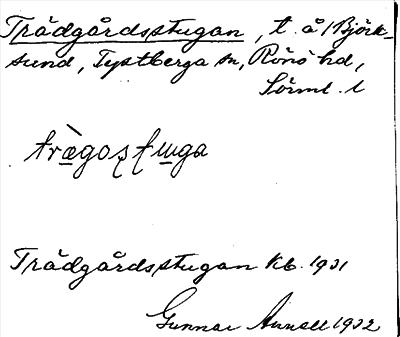 Trädgårdsstugan, t. å 1 Björk-
sund, Tystberga sn, Rönö hd,
Sörml. l
trægosstɯga
Trädgårdsstugan Kb. 1931
Gunnar Annell 1932